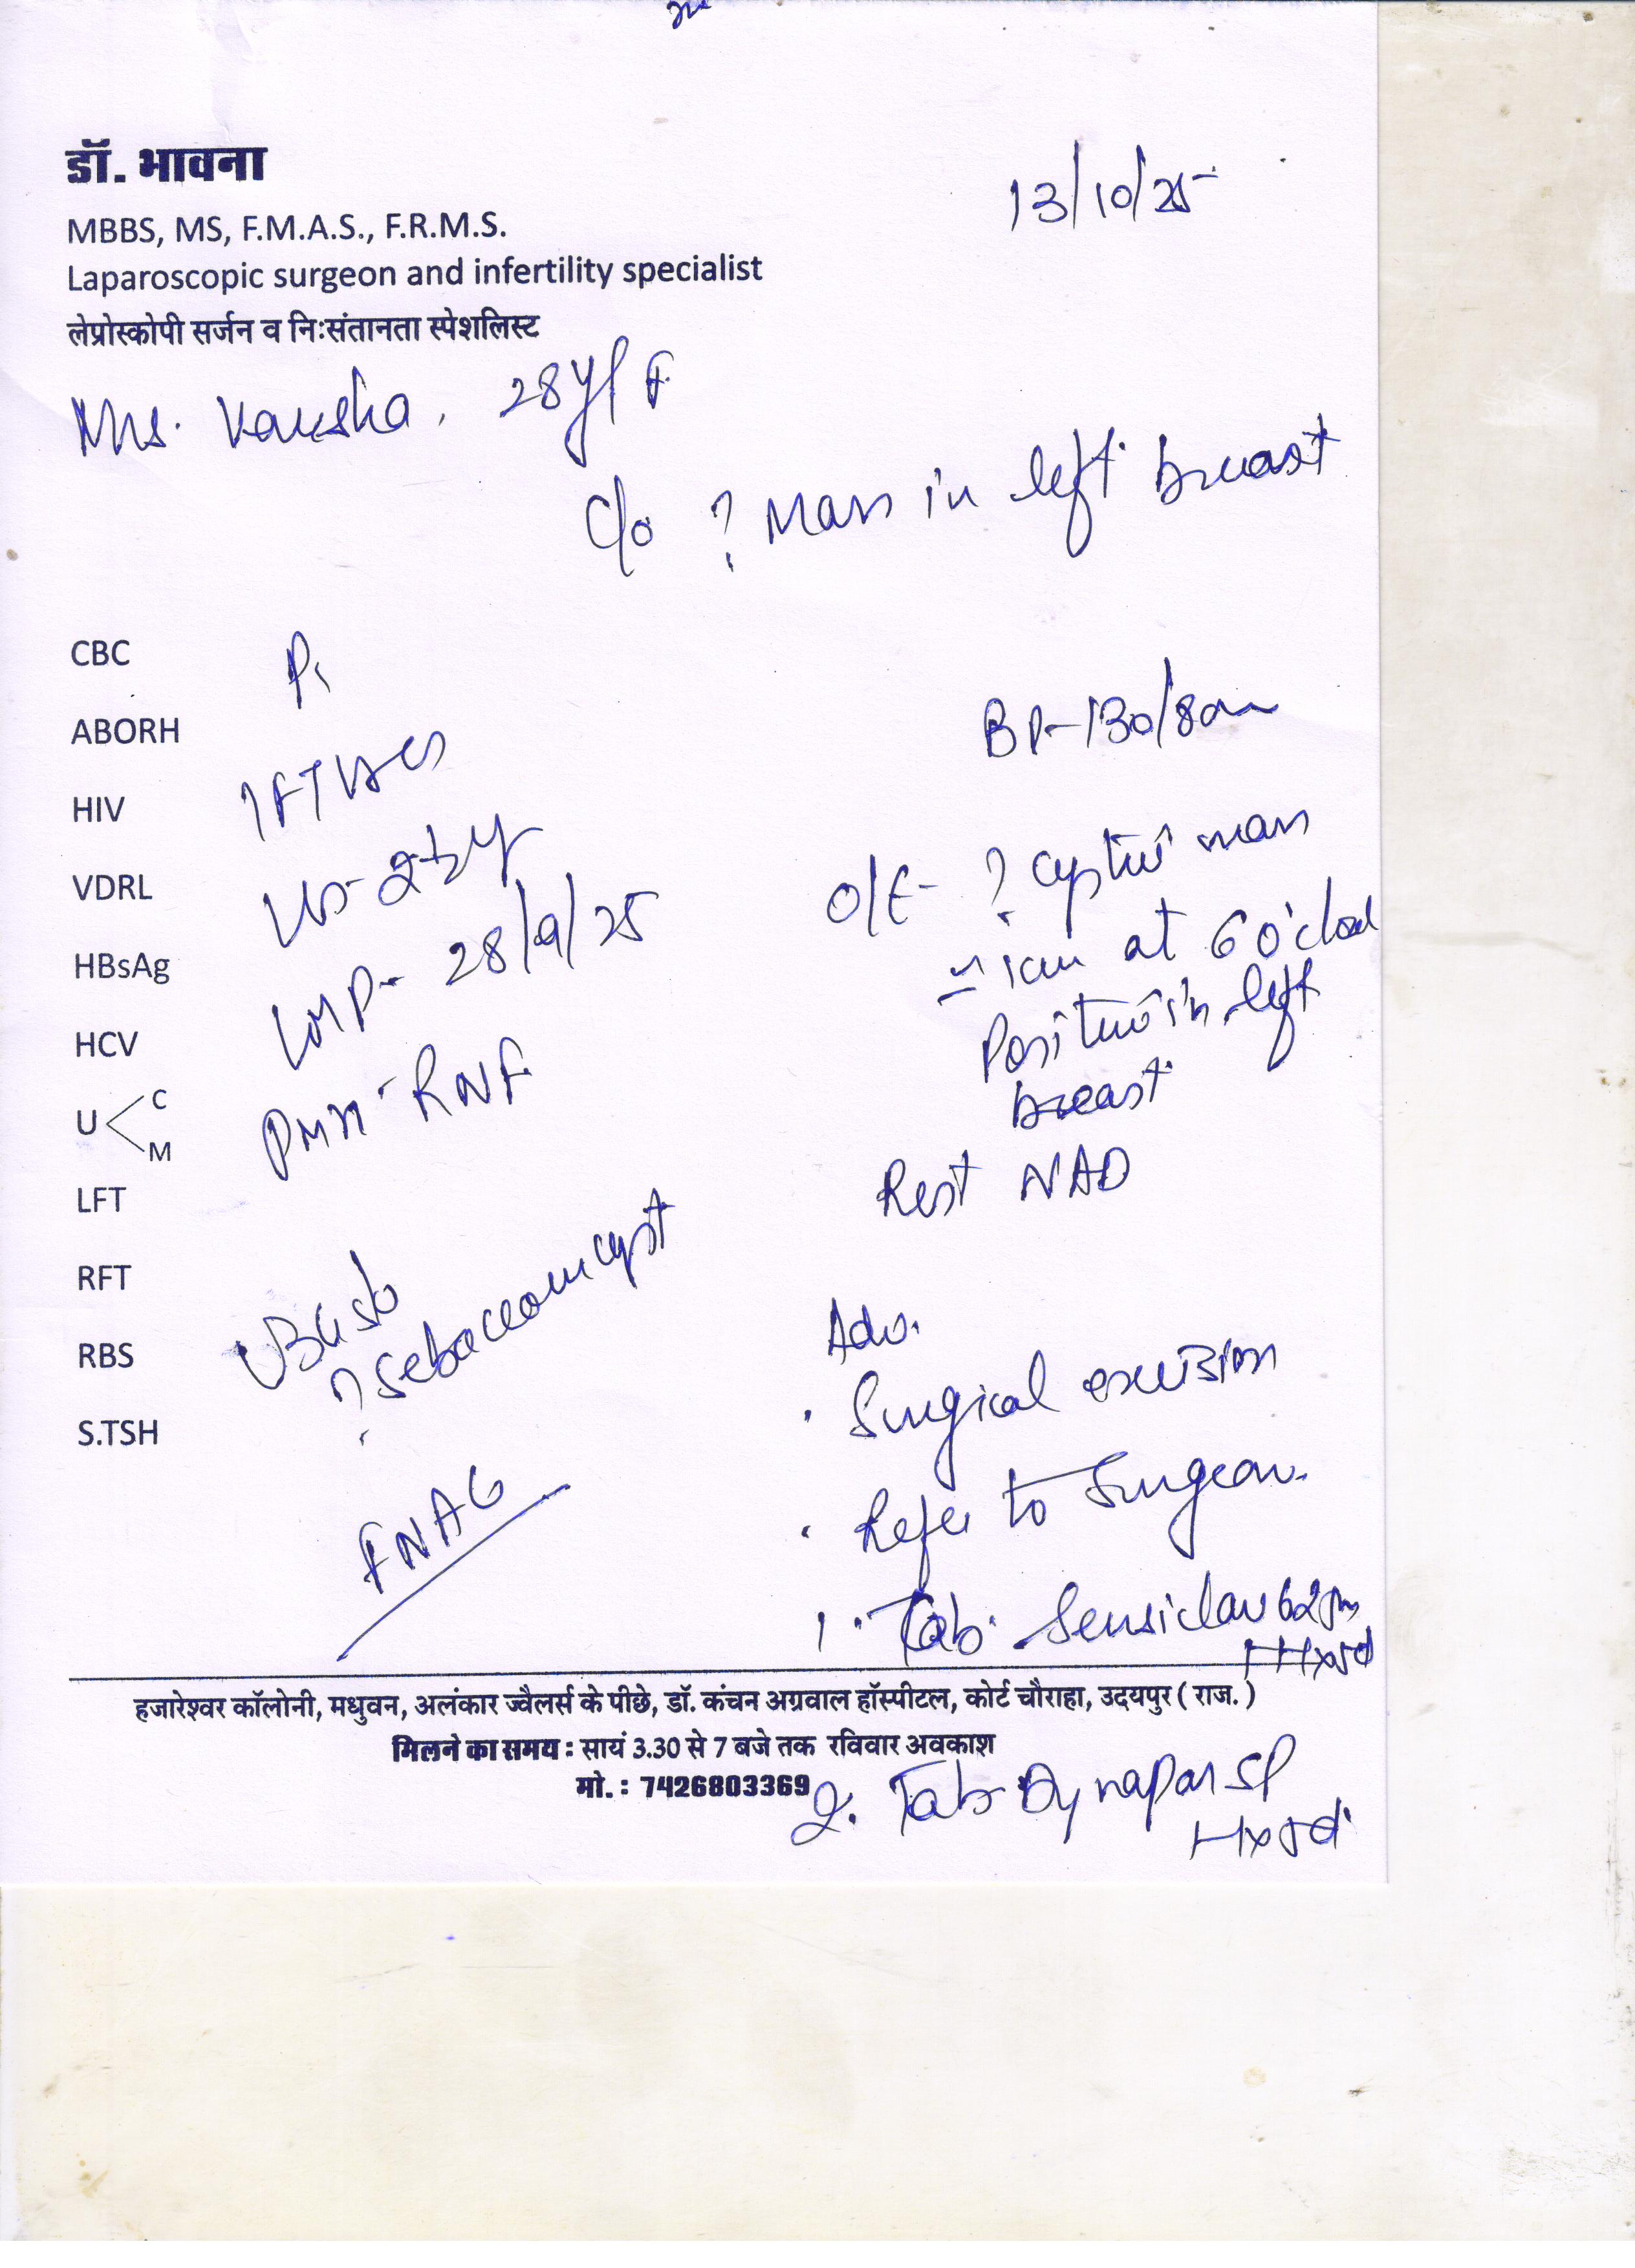 डॉ. भावना
13/10/25
MBBS, MS, F.M.A.S., F.R.M.S.
Laparoscopic surgeon and infertility specialist
लेप्रोस्कोपी सर्जन व निःसंतानता स्पेशलिस्ट
Mrs. 28y/F
C/o ? Mass in left breast
CBC
P1
ABORH
BP-130/80
HIV
1 FT
VDRL
O/E- ? cystic mass
HBsAg
LMP- 28/9/25
≃ 1cm at 6 o'clock
HCV
position in left
PMH- RNF
breast
U < C M
Rest NAD
LFT
RFT
? Sebaceous cyst
Adv.
RBS
. Surgical excision
S.TSH
FNAC
. Refer to Surgeon.
1. Tab. Sensiclav 625
x 5d
हजारेश्वर कॉलोनी, मधुवन, अलंकार ज्वैलर्स के पीछे, डॉ. कंचन अग्रवाल हॉस्पीटल, कोर्ट चौराहा, उदयपुर ( राज. )
मिलने का समय : सायं 3.30 से 7 बजे तक रविवार अवकाश
मो. : 7426803369
2. Tab Dynapar SP
x 5d